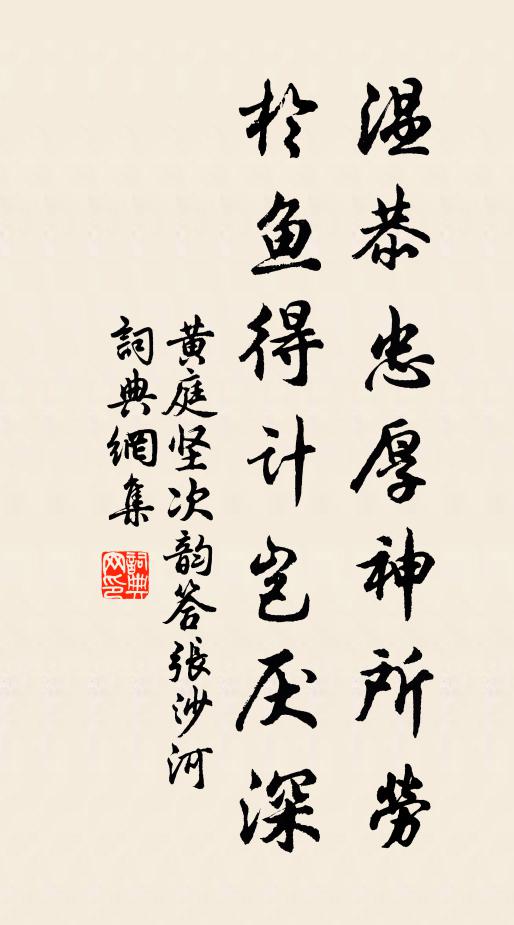 温恭忠厚神所勞
於鱼得计岂厌深
黄庭坚次韵答張沙河
詞典網集
詞典网印